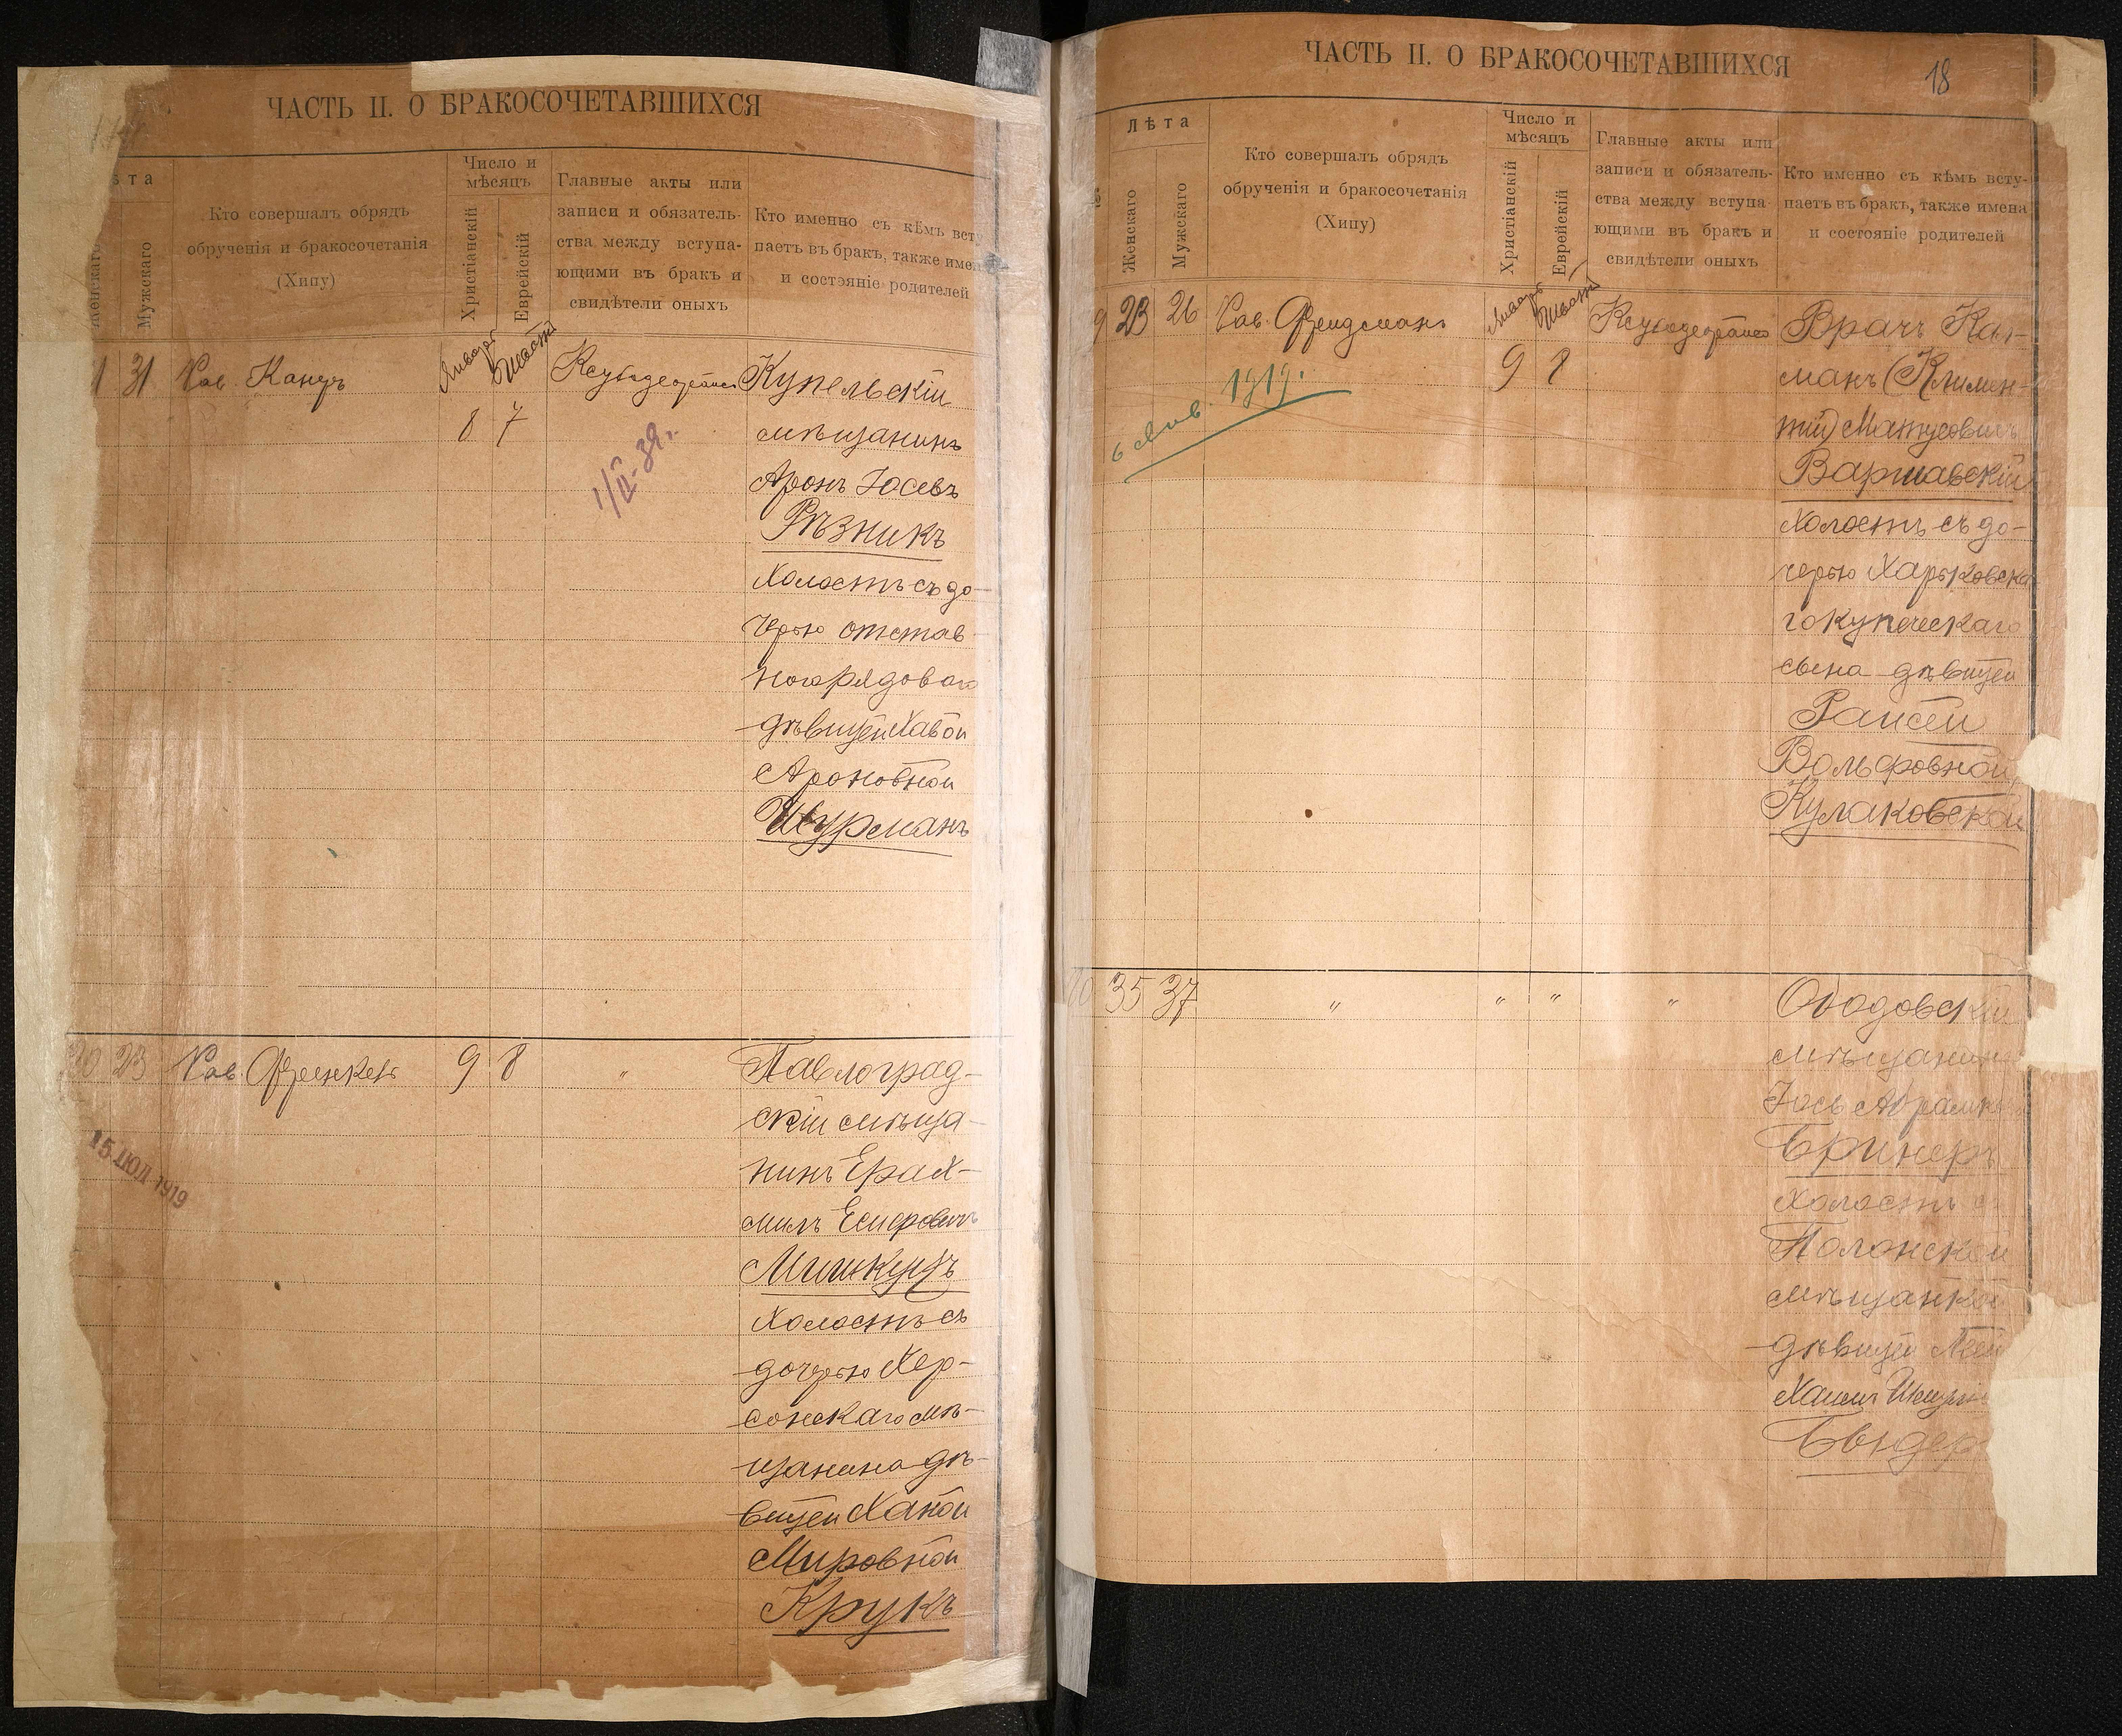 ЧАСТЬ II. О БРАКОСОЧЕТАВШИХСЯ
ѣта
Женскаго
Мужскаго
Кто совершалъ обрядъ
обрученія и бракосочетанія
(Хипу)
Число и
мѣсяцъ
Христіанскій
Еврейскій
Главные акты или
записи и обязатель-
ства между вступа-
ющими въ бракъ и
свидѣтели оныхъ
Кто именно съ кѣмъ всту
паетъ въ бракъ, также имен
и состояніе родителей
31
Рав. Канцъ
Январь
Шватъ
8 7
1/II-39г.
Купельскій
мѣщанинъ
Аронъ Іосевъ
Рѣзникъ
холостъ съ до-
черью отстав-
ного рядового
дѣвицей Хавой
Ароновной
Шурманъ
20 23
Рав. Френкель
9 8
"
Павлоград-
скій мѣща-
нинъ Ерах-
милъ Есифовичъ
Мишкуцъ
холостъ съ
дочерью Хер-
сонскаго мѣ-
щанина дѣ-
вицей Ханой
Мировной
Крукъ
15 ИЮЛ 1919
ЧАСТЬ II. О БРАКОСОЧЕТАВШИХСЯ
18
Лѣта
Женскаго
Мужскаго
Кто совершалъ обрядъ
обрученія и бракосочетанія
(Хипу)
Число и
мѣсяцъ
Христіанскій
Еврейскій
Главные акты или
записи и обязатель-
ства между вступа-
ющими въ бракъ и
свидѣтели оныхъ
Кто именно съ кѣмъ всту-
паетъ въ бракъ, также имена
и состояніе родителей
9 23 26
Рав. Фридманъ
Январь
Шватъ
9 8
6 Янв. 1919г.
Врачъ Кал-
манъ (Климен-
тій) Матусовичъ
Варшавскій
холостъ съ до-
черью Харьковска
го купеческаго
сына дѣвицей
Раисей
Вольфовной
Кулаковской
35 37
" " " "
Ободовскій
мѣщанинъ
Іось Абрамк
Бринеръ
холостъ съ
Полонской
мѣщанкой
дѣвицей
Бендер